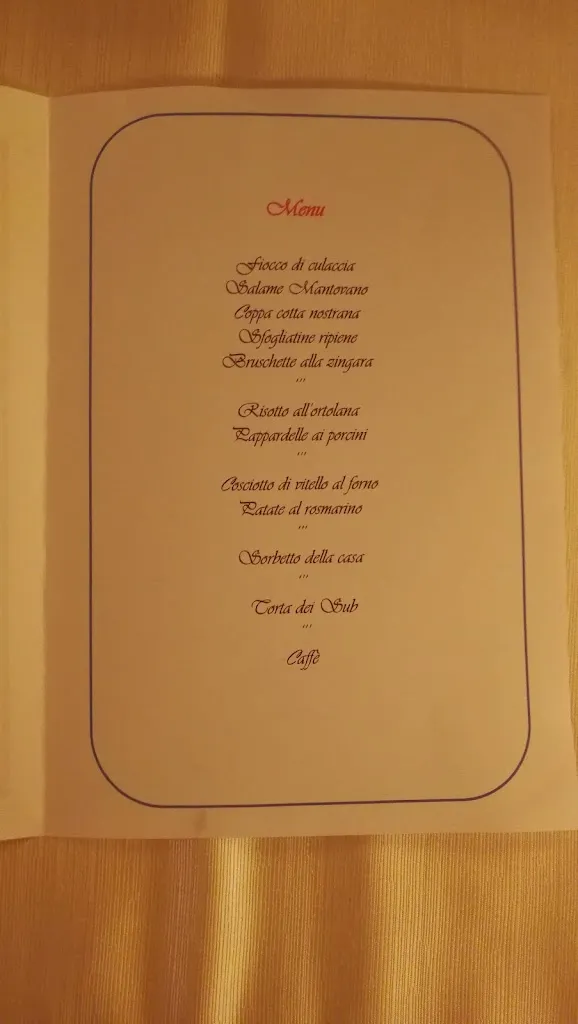 Menu
Fiocco di culaccia
Salame Mantovano
Coppa cotta nostrana
Sfogliatine ripiene
Bruschette alla zingara
,,,
Risotto all'ortolana
Pappardelle ai porcini
,,,
Cosciotto di vitello al forno
Patate al rosmarino
,,,
Sorbetto della casa
,,,
Torta dei Sub
,,,
Caffè